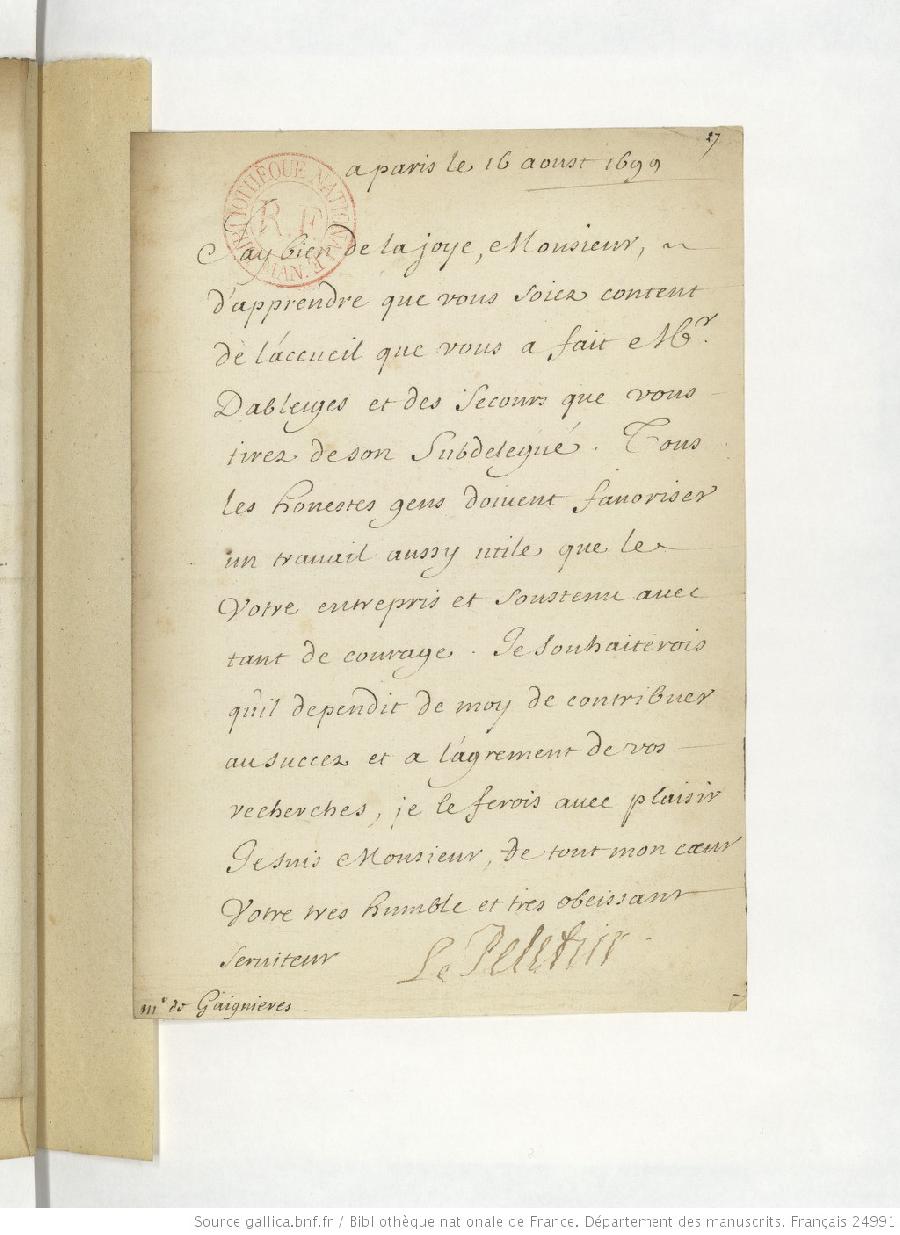 27
a paris le 16 aoust 1699
BIBLIOTHÈQUE NATIONALE MAN.
R.F
J'ay bien de la joye, Monsieur,
d'apprendre que vous soiez content
de l'accueil que vous a fait Mr.
Dableiges et des secours que vous
tirez de son Subdelegué. Tous
les honestes gens doivent favoriser
un travail aussy utile que le
Votre entrepris et soustenu avec
tant de courage. Je souhaiterois
qu'il dependit de moy de contribuer
au succez et a l'agrement de vos
recherches, je le ferois avec plaisir
Je suis Monsieur, de tout mon cœur
Votre tres humble et tres obeissant
serviteur
Le Peletier
mr de Gaignieres
Source gallica.bnf.fr / Bibliothèque nationale de France. Département des manuscrits. Français 24991